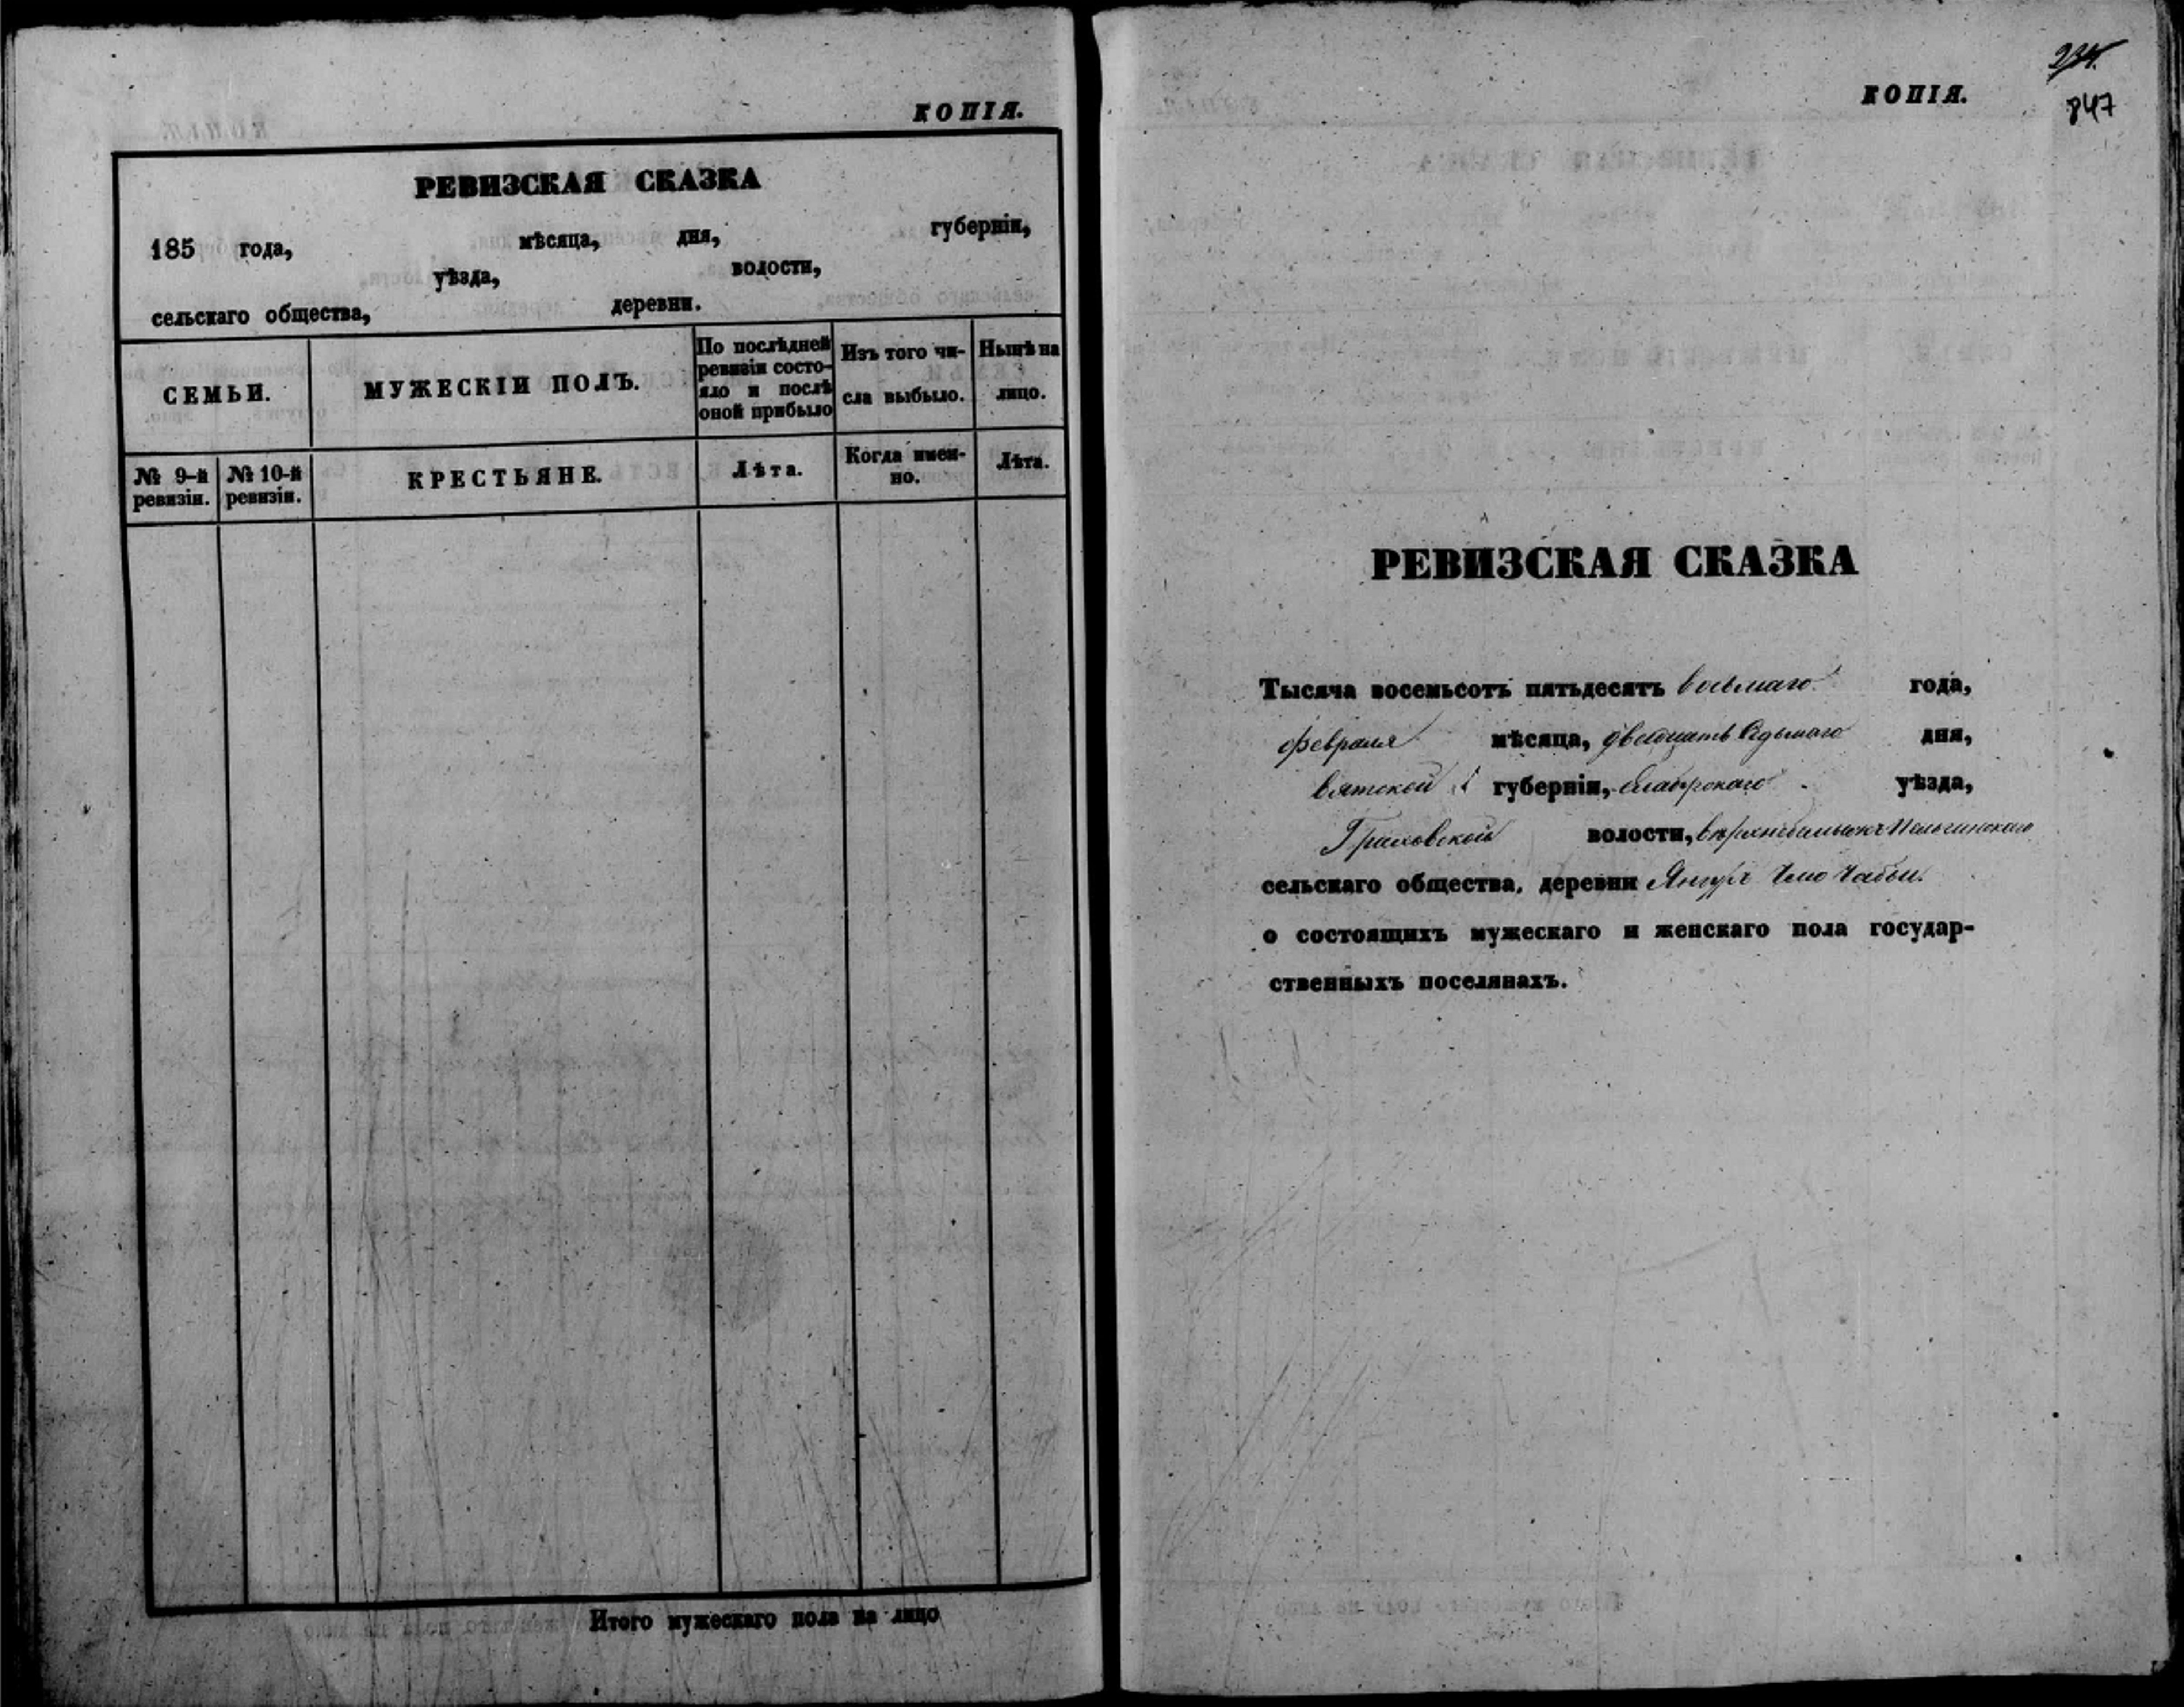 КОПІЯ.
РЕВИЗСКАЯ СКАЗКА
185 года, мѣсяца, дня, губерніи,
уѣзда, волости,
сельскаго общества, деревни.
СЕМЬИ.
МУЖЕСКІЙ ПОЛЪ.
По послѣдней
ревизіи состо-
яло и послѣ
оной прибыло
Изъ того чи-
сла выбыло.
Нынѣ на
лицо.
№ 9-й
ревизіи.
№ 10-й
ревизіи.
КРЕСТЬЯНЕ.
Лѣта.
Когда имен-
но.
Лѣта.
Итого мужескаго пола на лицо
234.
КОПІЯ.
847
РЕВИЗСКАЯ СКАЗКА
Тысяча восемьсотъ пятьдесятъ восьмаго года,
февраля мѣсяца, двадцать седьмаго дня,
Вятской губерніи, Елабужскаго уѣзда,
Граховской волости,
сельскаго общества, деревни Чабьи.
о состоящихъ мужескаго и женскаго пола государ-
ственныхъ поселянахъ.